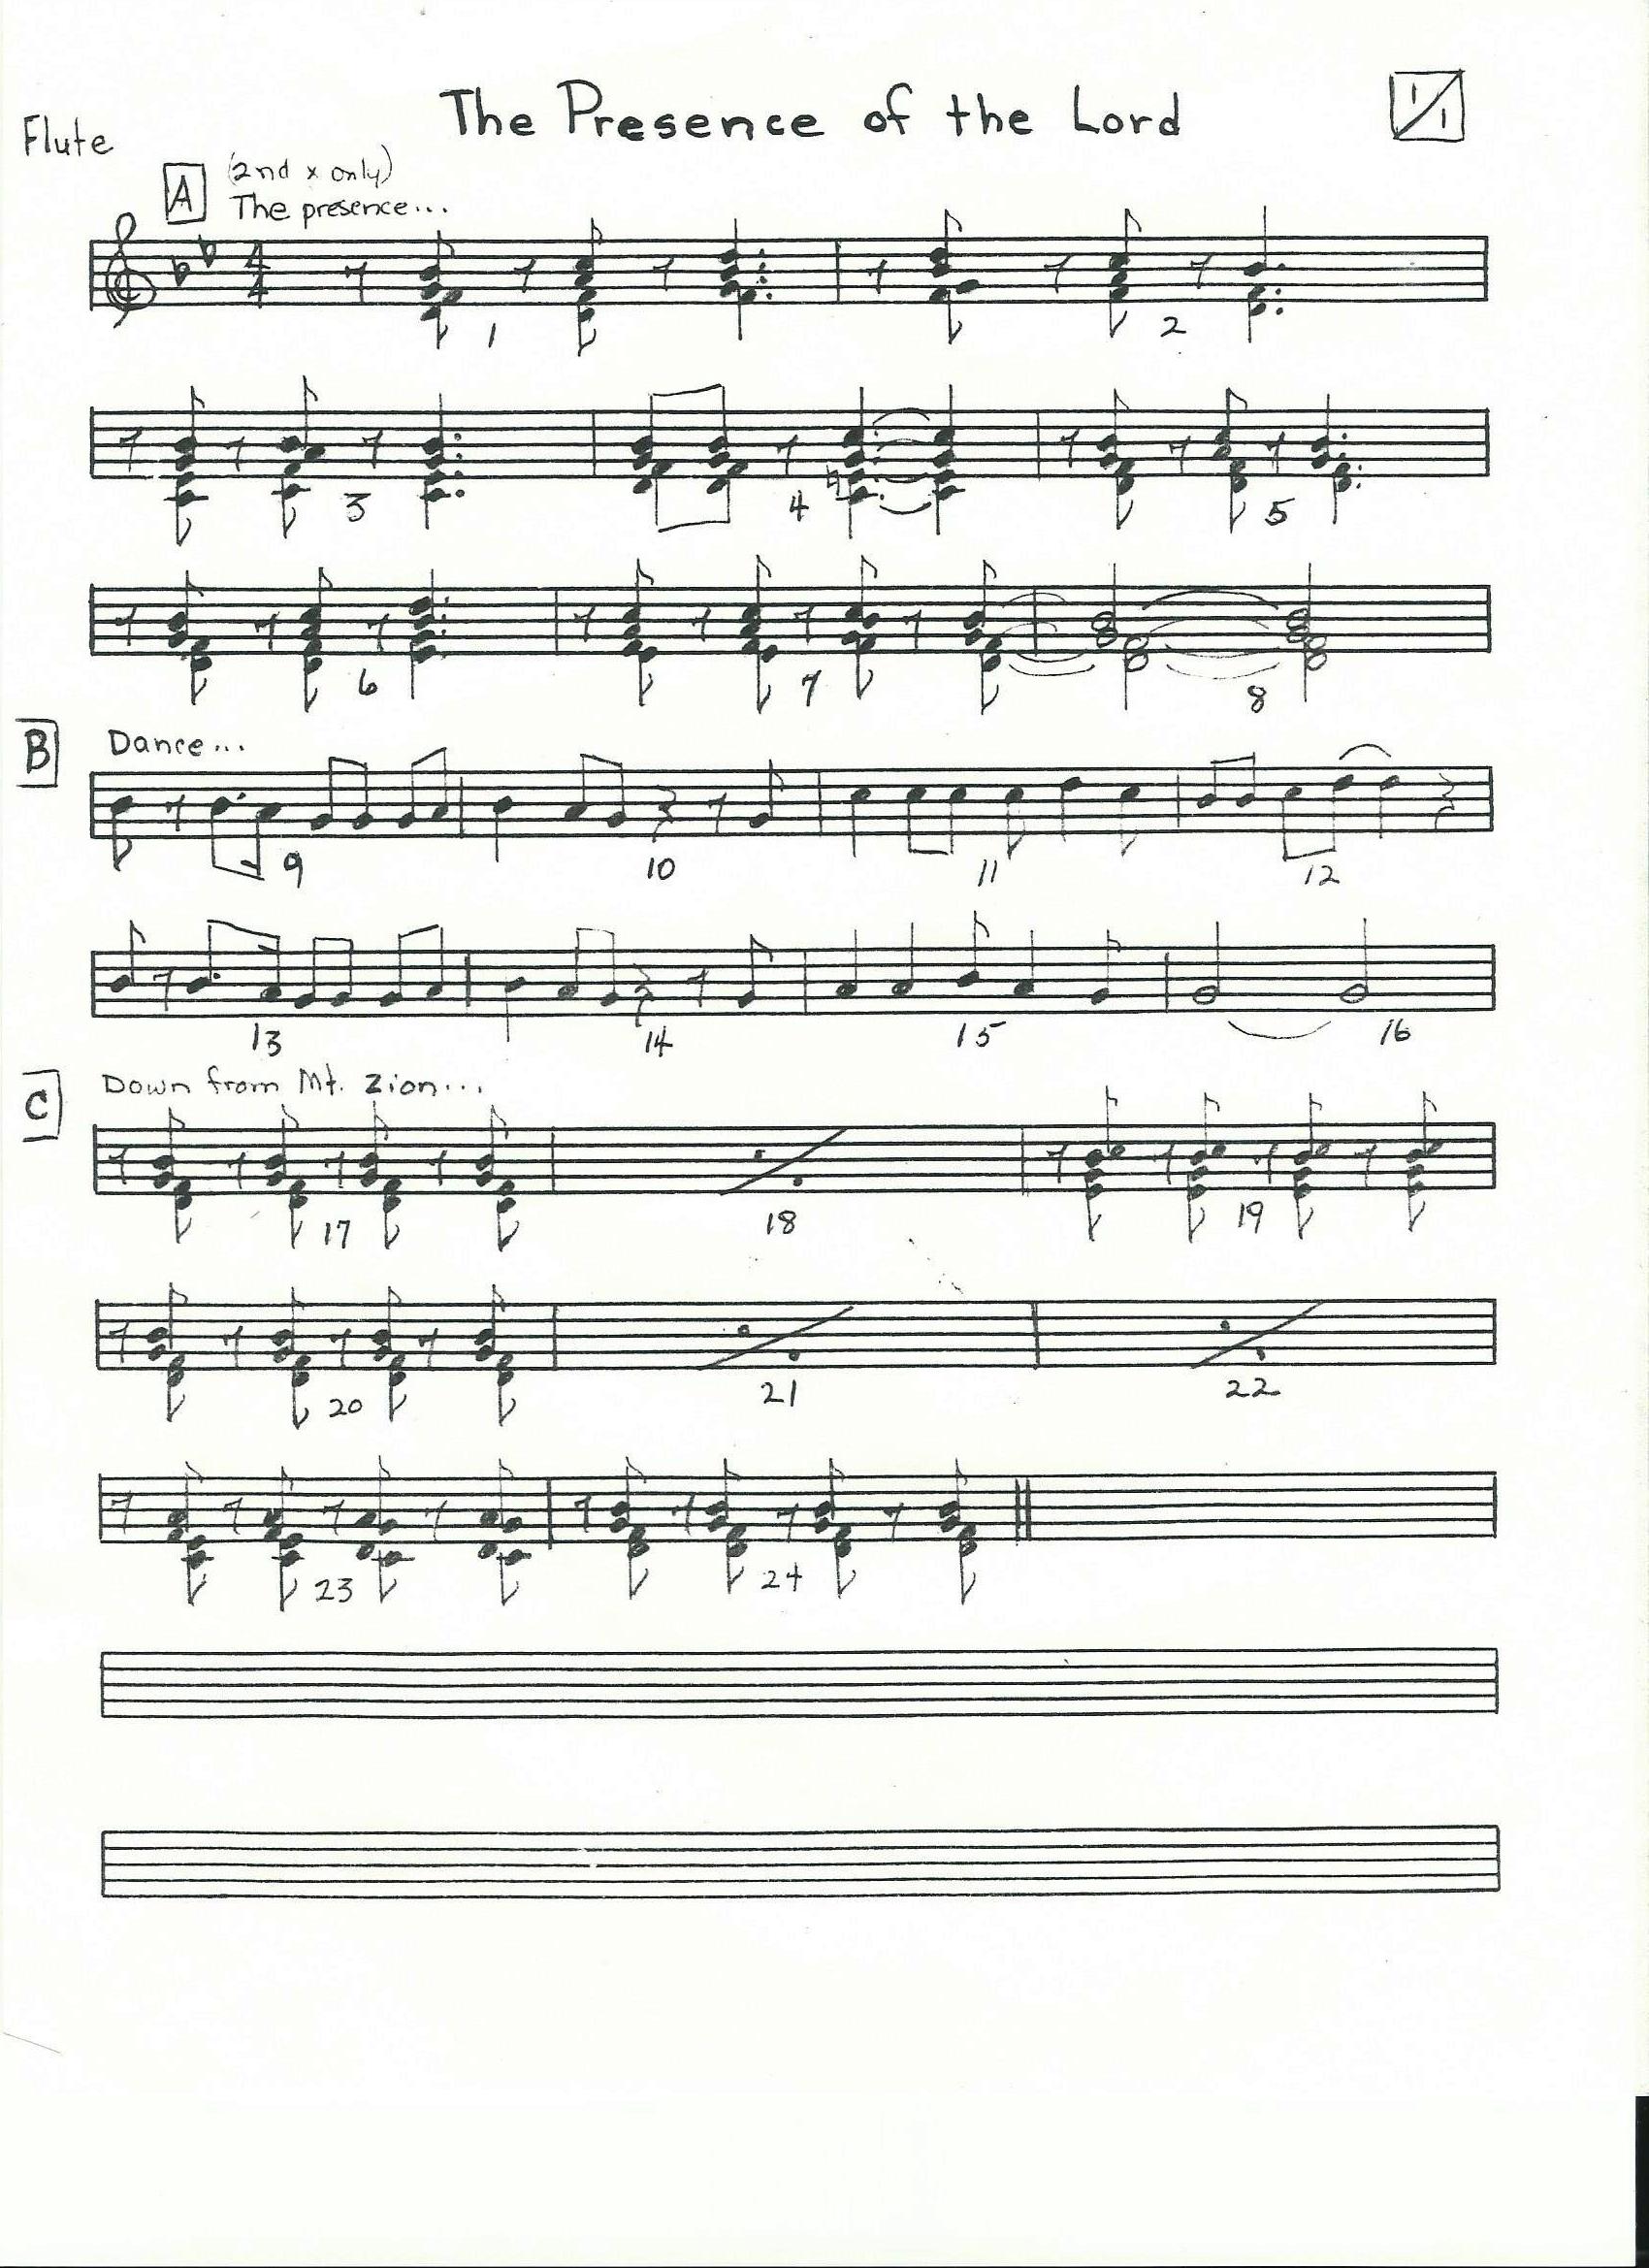 The Presence of the Lord
1/1
Flute
A (2nd x only)
The presence...
4/4
1 2
3 4 5
6 7 8
B Dance...
9 10 11 12
13 14 15 16
C Down from Mt. Zion...
17 18 19
20 21 22
23 24